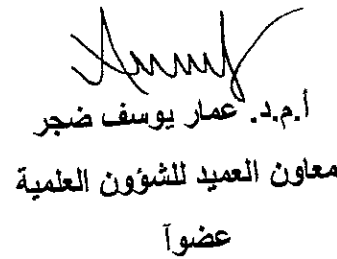 أ.م.د. عمار يوسف ضجر
معاون العميد للشؤون العلمية
عضوآ